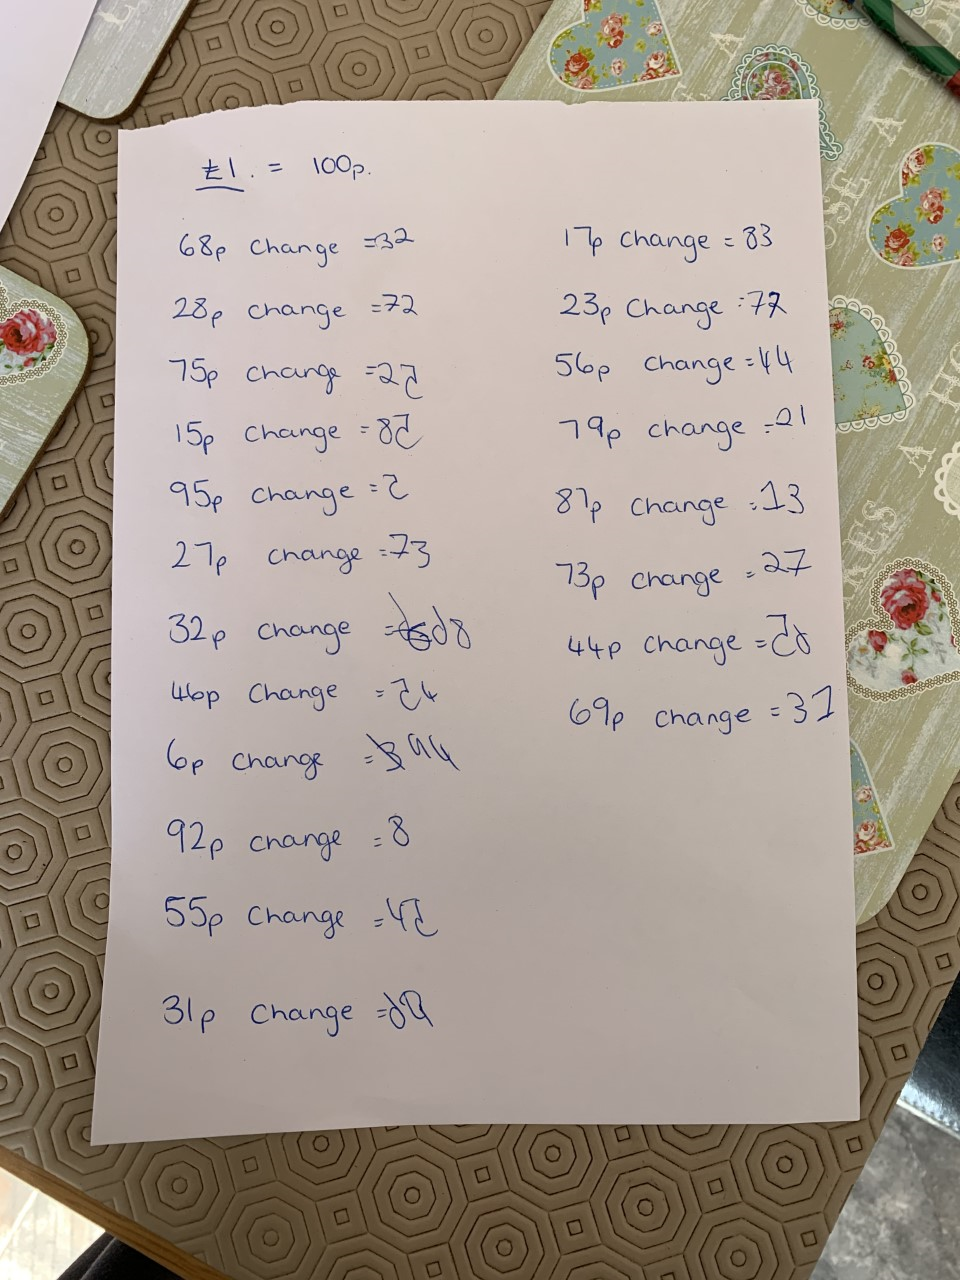 £1. = 100p.
68p change = 32
28p change = 72
75p change = 25
15p change = 85
95p change = 5
27p change = 73
32p change = 68
46p change = 54
6p change = 94
92p change = 8
55p change = 45
31p change = 69
17p change = 83
23p change = 77
56p change = 44
79p change = 21
87p change = 13
73p change = 27
44p change = 56
69p change = 31